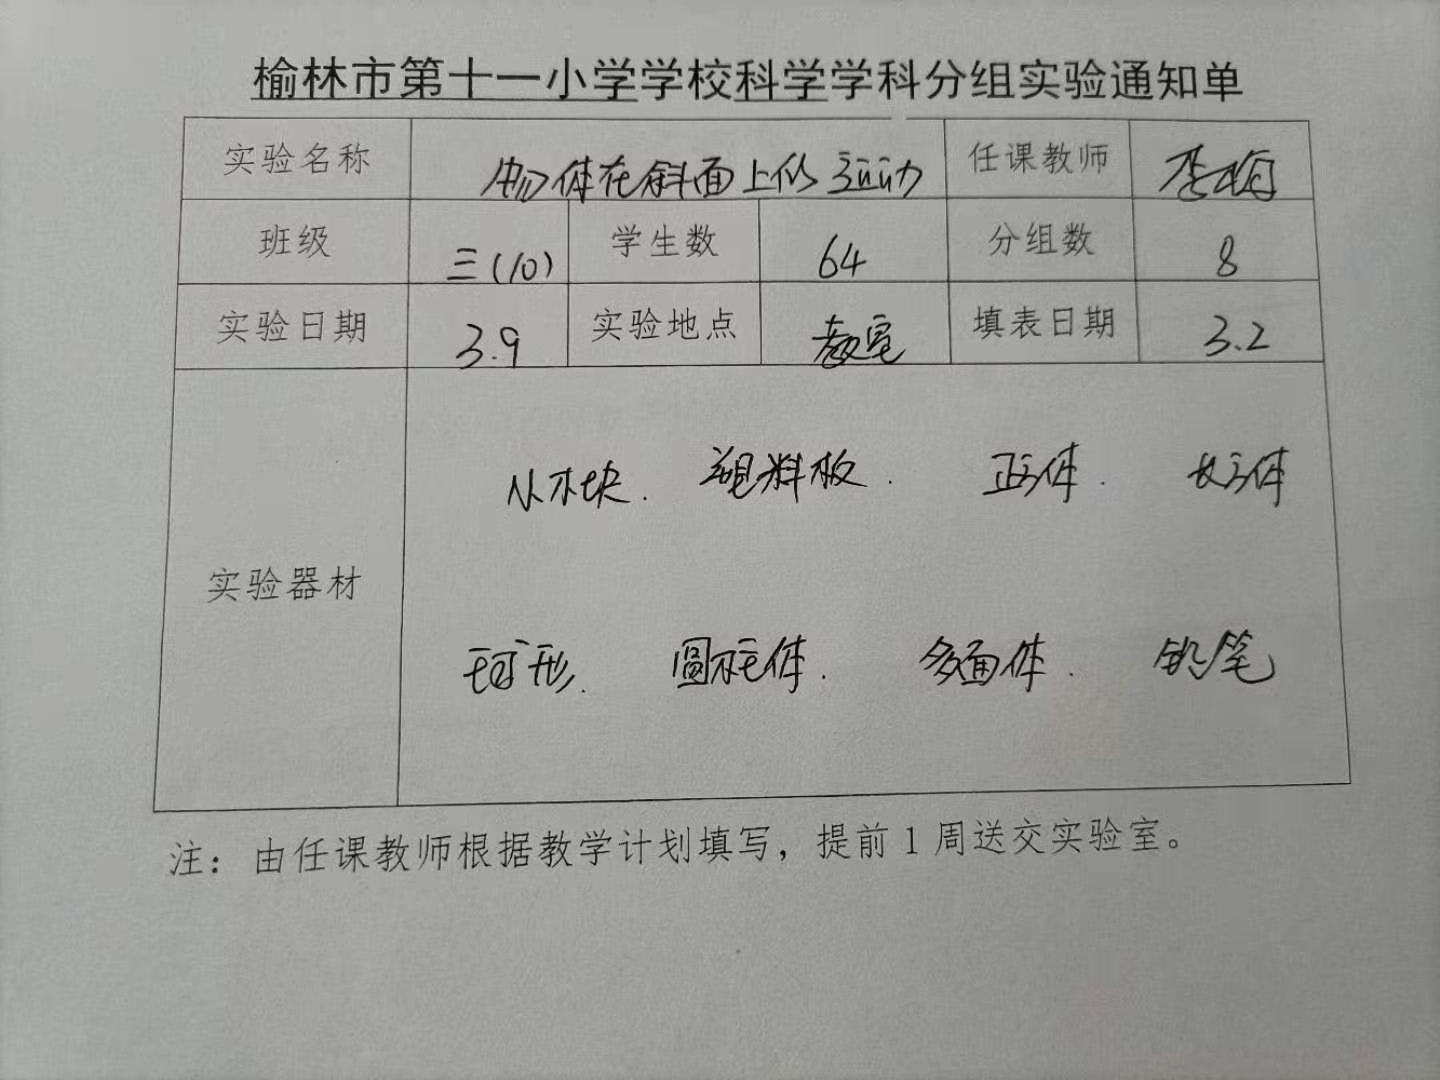 榆林市第十一小学学校科学学科分组实验通知单
实验名称 物体在斜面上的运动 任课教师 李梅
班级 三(10) 学生数 64 分组数 8
实验日期 3.9 实验地点 教室 填表日期 3.2
实验器材
小木块. 塑料板. 正方体. 长方体
球形. 圆柱体. 多面体. 铅笔
注：由任课教师根据教学计划填写，提前1周送交实验室。